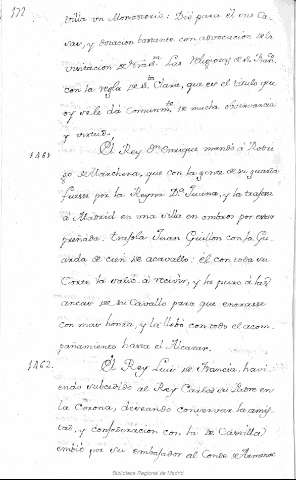 172
villa un Monasterio: Dió para él sus Ca-
sas, y dotacion bastante con advocacion de la
visitacion de Ntra. Las Religiosas de S. Fran.
con la regla de Sta. Clara, que es el titulo que
oy se le dá comunmte. de mucha observancia
y virtud.
1461. El Rey Dn. Enrique mandó á Rodri-
go de Marchena, que con la gente de su guarda
fuesse por la Reyna Da. Juana, y la trajesse
á Madrid en una silla en ombros por estar
preñada: trajola Juan Guillen con la Gu-
arda de cien de acavallo: el con toda su
Corte la salió á recivir, y la puso á las
ancas de su Cavallo para que entrasse
con mas honra, y la llebó con todo el acom-
pañamiento hasta el Alcazar.
1462. El Rey Luis de Francia, havi-
endo subcedido al Rey Carlos su Padre en
la Corona, deseando conservar la amis-
tad, y confederacion con la de Castilla
embió por su embajador al Conde de Armenac
Biblioteca Regional de Madrid